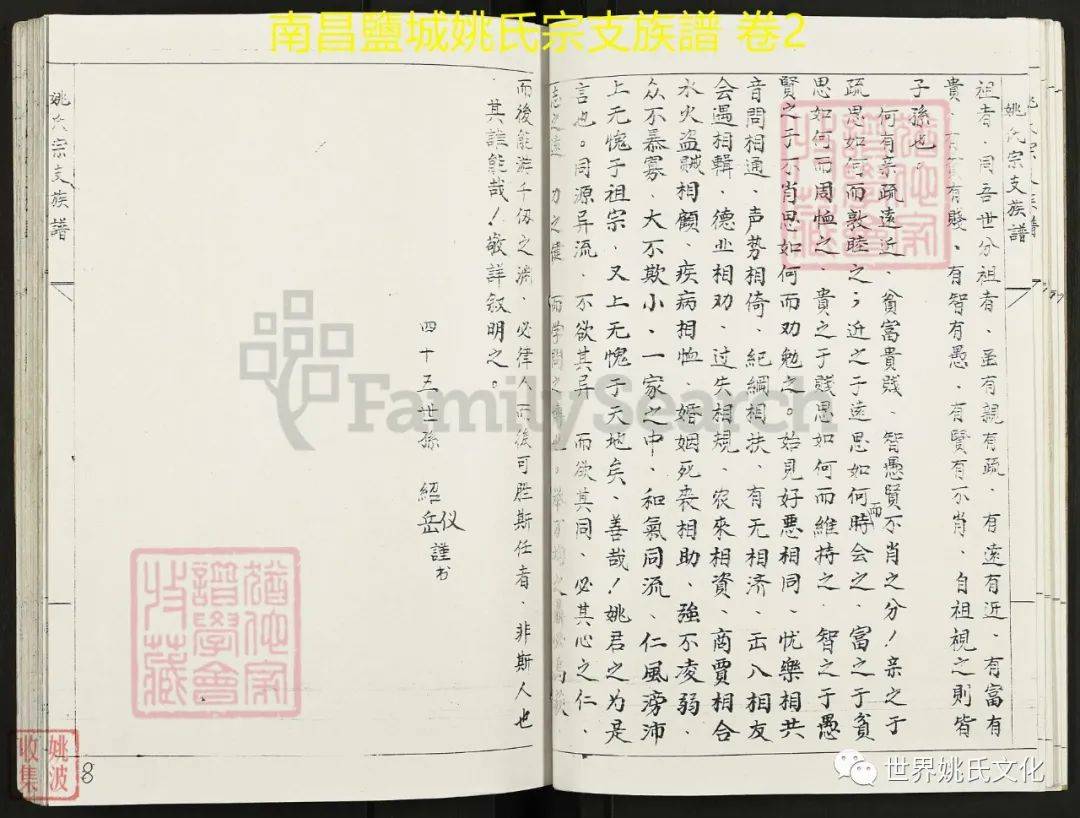 南昌鹽城姚氏宗支族譜 卷2
姚氏宗支族譜
祖者、同吾世分祖者、虽有親有疏、有遠有近、有富有
貴、有貧有賤、有智有愚、有賢有不肖、自祖視之則皆
子孫也。
何有亲疏遠近、貧富貴賤、智愚賢不肖之分！亲之于
疏思如何而敦睦之；近之于遠思如何而時会之、富之于貧
思如何而周恤之、貴之于賤思如何而維持之、智之于愚
賢之于不肖思如何而劝勉之。始見好悪相同、忧樂相共
音問相通、声势相倚、紀綱相扶、有无相济、出入相友
会遇相輯、德业相劝、过失相規、农來相資、商賈相合
水火盗賊相顧、疾病相恤、婚姻死丧相助、強不凌弱、
众不暴寡、大不欺小、一家之中、和氣同流、仁風滂沛
上无愧于祖宗、又上无愧于天地矣、善哉！姚君之为是
言也。同源异流、不欲其异、而欲其同、必其心之仁、
志之遠 力之健 而学問之博也。
而後能游千仞之渊、必律人而後可胜斯任者、非斯人也
其誰能哉！敬詳叙明之。
四十五世孫 紹仪 岳 謹书
姚氏宗支族譜
8
姚波收集
FamilySearch
世界姚氏文化